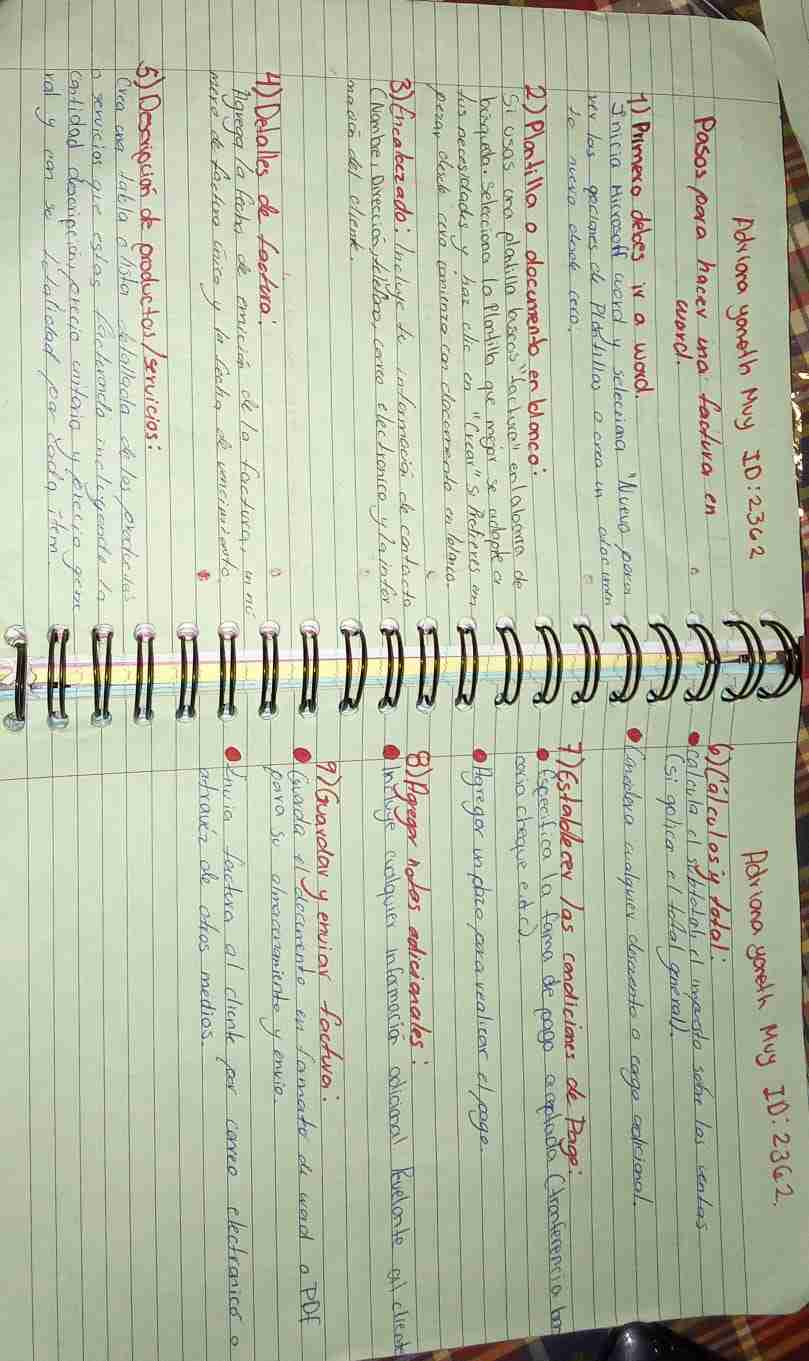 Adriana yoneth Muy ID:2362
Pasos para hacer una factura en
word.
1) Primero debes ir a word.
Inicia Microsoft word y selecciona "Nuevo para
ver las opciones de Plantillas o crea un documen
to nuevo desde cero.
2) Plantilla o documento en blanco:
Si usas una plantilla buscas "factura" en la barra de
busqueda. Selecciona la Plantilla que mejor se adapte a
tus necesidades y haz clic en "Crear" si Prefieres em
pezar desde cero comienza con documento en blanco.
3) Encabezado: Incluye tu información de contacto
(Nombre, Dirección, teléfono, correo electronico y la infor
mación del cliente.
4) Detalles de factura:
Agrega la fecha de emición de la factura, un nú
mero de factura único y la fecha de vencimiento
5) Descripción de productos/servicios:
Crea una tabla o lista detallada de los productos
o servicios que estas facturando incluyendo la
cantidad descripción, precio unitario y precio gene
ral y con su totalidad por cada item.
Adriana yoneth Muy ID:2362.
6) Cálculos y total:
Calcula el subtotal, el impuesto sobre las ventas
(si aplica el total general).
Considera cualquier descuento o cargo adicional.
7) Establecer las condiciones de Pago:
Especifica la forma de pago aceptada (tranferencia ban
caria cheque e.t.c).
Agregar un plazo para realizar el pago.
8) Agregar notas adicionales:
Incluye cualquier información adicional Revelante al cliente
9) Guardar y enviar factura:
Guarda el documento en formato de word o PDF
para su almacenamiento y envio.
Envia factura al cliente por correo electronico o
atravéz de otros medios.